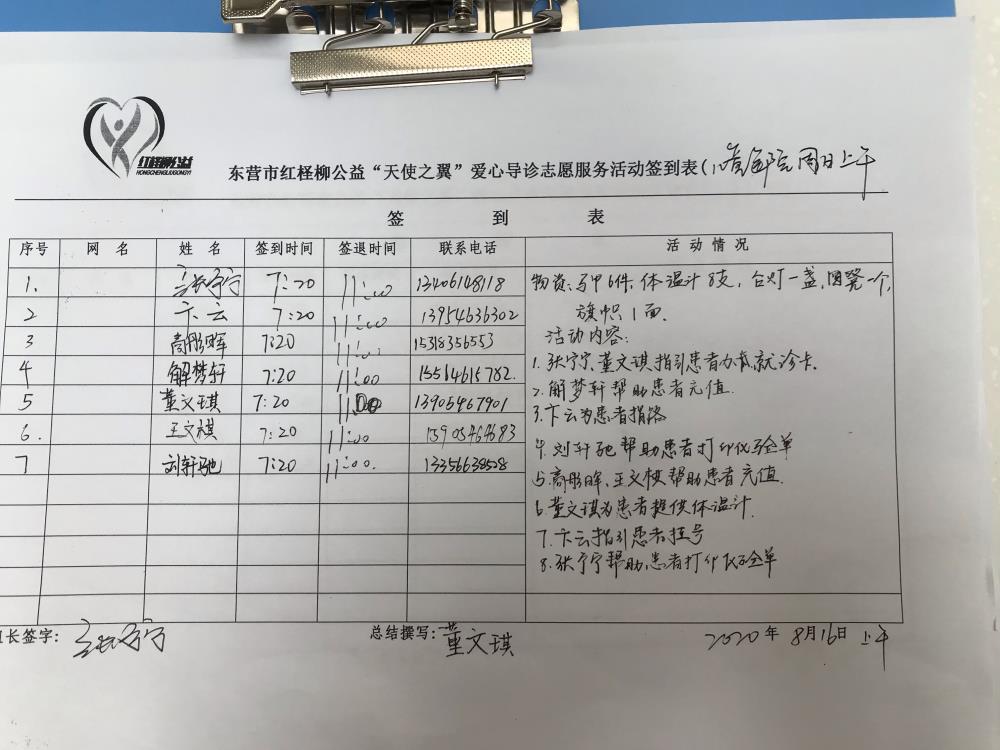 红柽柳公益
HONGCHENGLIUGONGYI
东营市红柽柳公益“天使之翼”爱心导诊志愿服务活动签到表( 周日上午
签 到 表
序号 网 名 姓 名 签到时间 签退时间 联系电话 活 动 情 况
1. 张宁宁 7:20 11:00 13406148118
物资:马甲6件,体温计8支,台灯一盏,圆凳一个,
旗帜1面.
2 卞云 7:20 11:00 13954636302
活动内容:
3 高彤晖 7:20 11:00 15318356553
1. 张宁宁、董文琪指引患者办就诊卡.
4 解梦轩 7:20 11:00 15514615782.
2. 解梦轩帮助患者充值.
5 董文琪 7:20 11:00 13905467901
3. 卞云为患者指路
6. 王文祺 7:20 11:00
4. 刘轩驰帮助患者打印化验单
7 刘轩驰 7:20 11:00.
5. 高彤晖、王文祺帮助患者充值.
6. 董文琪为患者提供体温计.
7. 卞云指引患者挂号
8. 张宁宁帮助患者打印化验单
长签字: 张宁宁 总结撰写: 董文琪 2020年 8月16日 上午